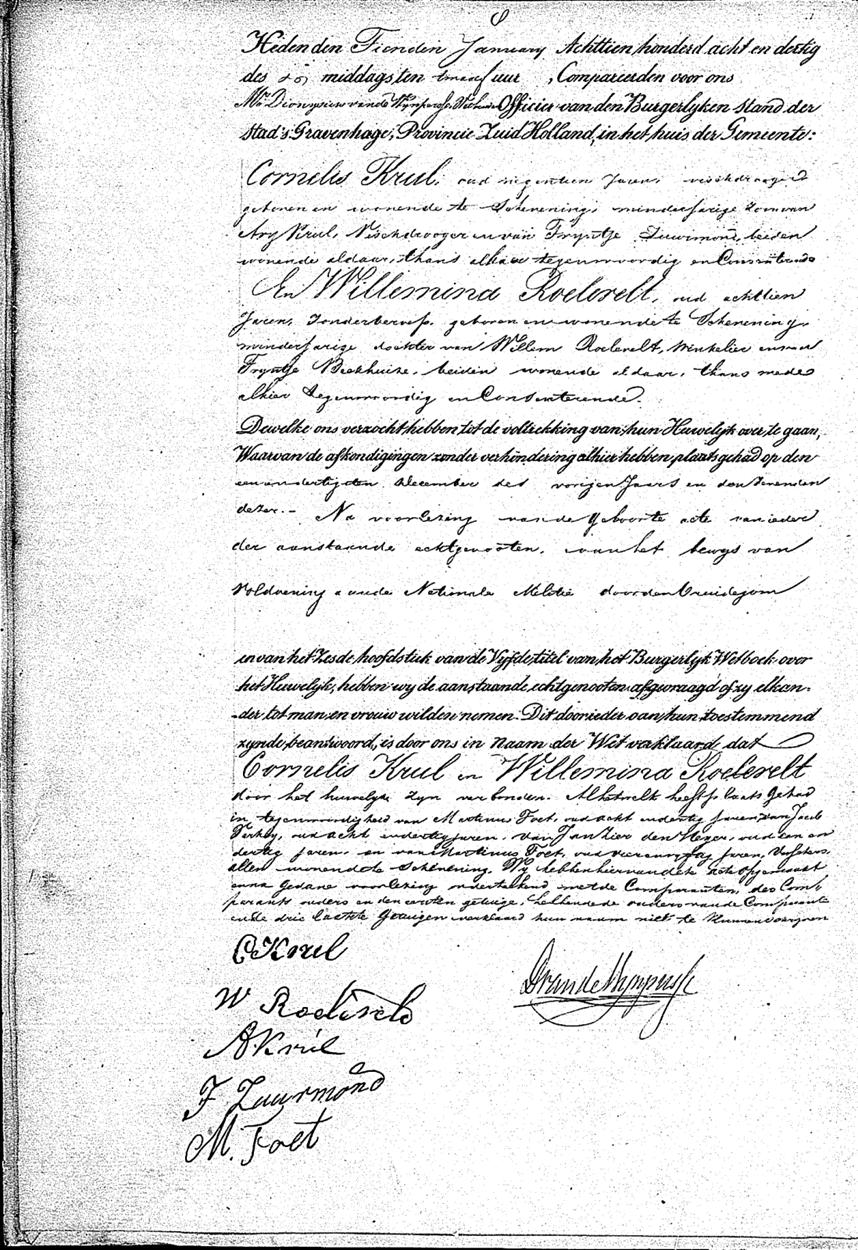 8
Heden den Tienden January Achttien honderd acht en dertig
des na middags ten twee uur, Compareerden voor ons
Mr Dionysius van de Wynpersse, Officier van den Burgerlyken stand der
Stad 's Gravenhage, Provincie Zuid Holland, in het huis der Gemeente:
Cornelis Krul, oud negentien Jaren, vischdrooger
geboren en wonende te Schevening, minderjarige zoon van
Ary Krul, Vischdrooger en van Fryntje Zuurmond, beiden
wonende aldaar, thans alhier tegenwoordig en Consenterende
En Willemina Roeleveld, oud achttien
Jaren, Zonder beroep, geboren en wonende te Schevening,
minderjarige dochter van Willem Roeleveld, Winkelier en van
Fryntje Beekhuize, beiden wonende aldaar, thans mede
alhier tegenwoordig en Consenterende.
Dewelke ons verzocht hebben, tot de voltrekking van hun Huwelyk over te gaan,
Waarvan de afkondigingen zonder verhindering alhier hebben plaats gehad op den
een en dertigsten December des vorigen Jaars en den Zevenden
dezer. - Na voorlezing van de geboorte acte van ieder
der aanstaande echtgenooten, van het bewys van
voldoening aan de Nationale Militie door den Bruidegom
en van het Zesde hoofdstuk van de Vyfde titel van het Burgerlyk Wetboek over
het Huwelyk, hebben wy de aanstaande echtgenooten afgevraagd of zy elkan-
der tot man en vrouw wilden nemen. Dit door ieder van hun toestemmend
zynde beantwoord, is door ons in naam der Wet verklaard, dat
Cornelis Krul en Willemina Roeleveld
door het huwelyk zyn verbonden. Al hetwelk heeft plaats gehad
in tegenwoordigheid van Martinus Foet, oud acht en dertig jaren, van Jacob
oud acht en dertig jaren, van Jan den Heyer, oud een en
dertig jaren, en van Martinus Foet, oud vier en jaren, Visschers
allen wonende te Schevening. Wy hebben hier van deze acte opgemaakt
en na gedane voorlezing ondertekend met de Comparanten, des Com-
parants ouders en den eersten getuige, hebbende de ouders van de Comparante
en de drie laatste getuigen verklaard hun naam niet te kunnen schryven
C Krul
D van de Wynpersse
W Roeleveld
A Krul
F Zuurmond
M. Foet